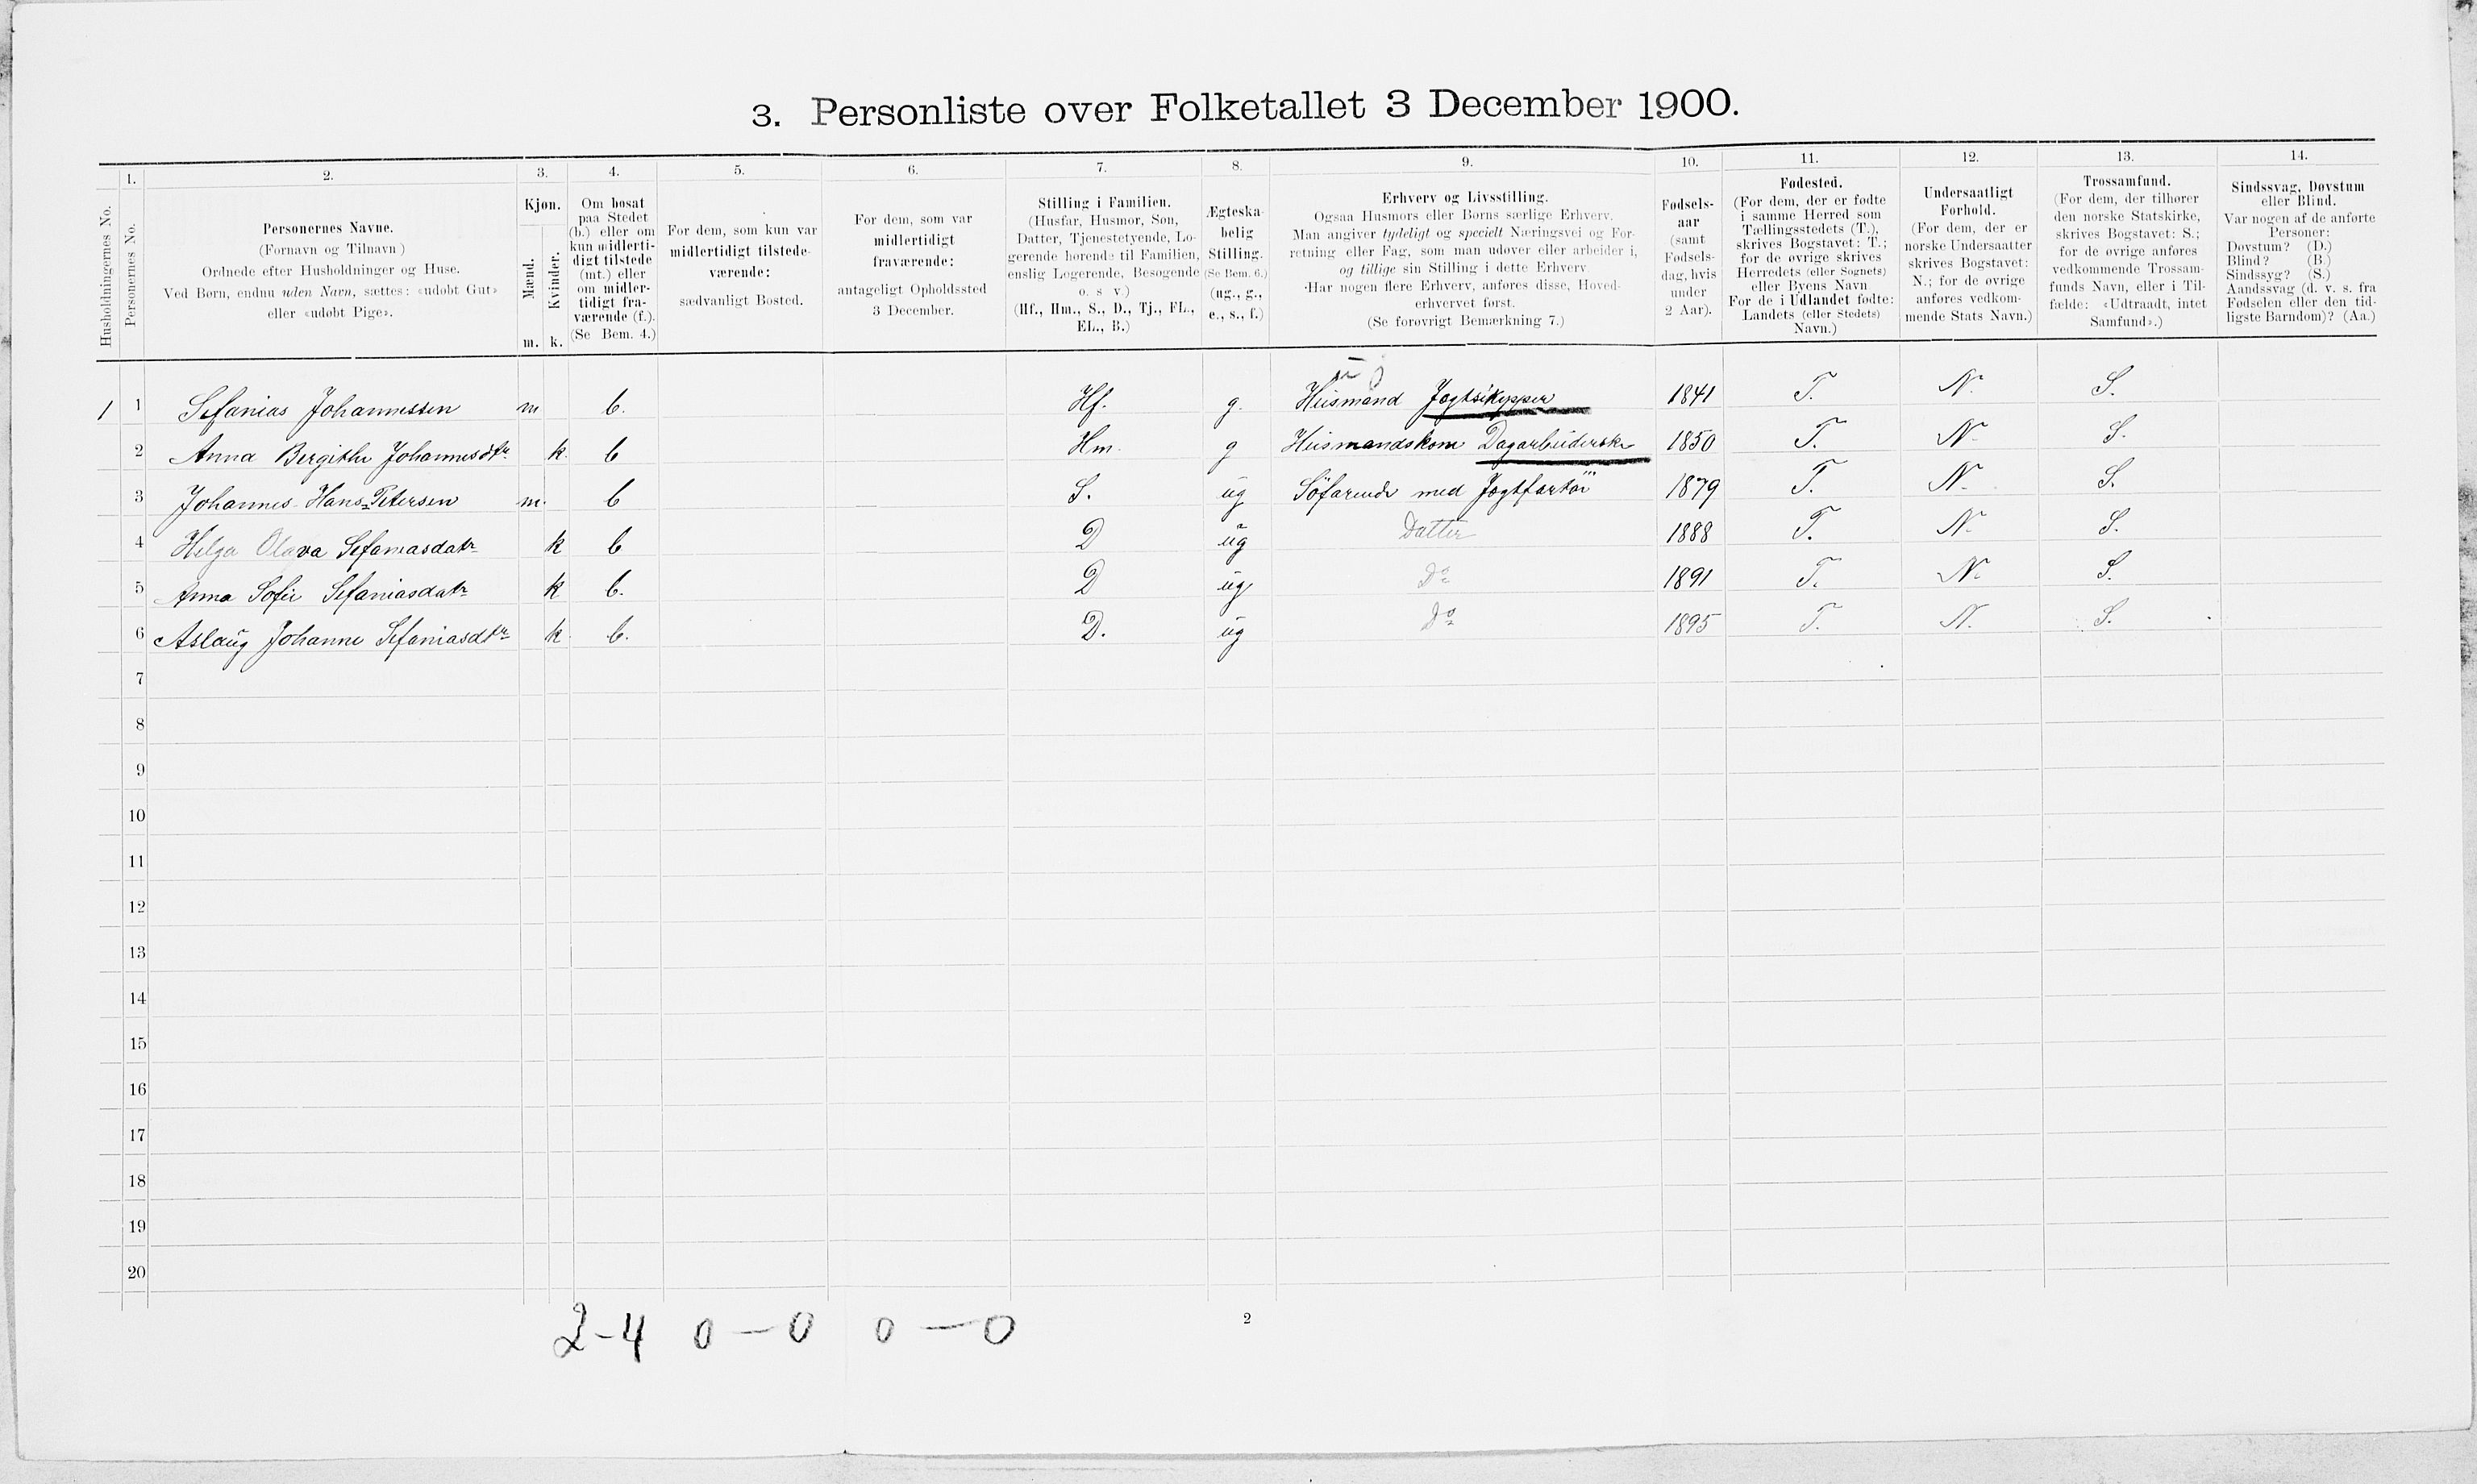 3. Personliste over Folketallet 3 December 1900.
Husholdningernes No.
1.
Personernes No.
2.
Personernes Navne.
(Fornavn og Tilnavn)
Ordnede efter Husholdninger og Huse.
Ved Børn, endnu uden Navn, sættes: «udøbt Gut»
eller «udøbt Pige».
3.
Kjøn.
Mænd.
Kvinder.
m. k.
4.
Om bosat
paa Stedet
(b.) eller om
kun midlerti-
digt tilstede
(mt.) eller
om midler-
tidigt fra-
værende (f.).
(Se Bem. 4.)
5.
For dem, som kun var
midlertidigt tilstede-
værende:
sædvanligt Bosted.
6.
For dem, som var
midlertidigt
fraværende:
antageligt Opholdssted
3 December.
7.
Stilling i Familien.
(Husfar, Husmor, Søn,
Datter, Tjenestetyende, Lo-
gerende hørende til Familien,
enslig Logerende, Besøgende
o. s v.)
(Hf., Hm., S., D., Tj., FL.,
EL., B.)
8.
Ægteska-
belig
Stilling.
(Se Bem. 6.)
(ug., g.,
e., s., f.)
9.
Erhverv og Livsstilling.
Ogsaa Husmors eller Børns særlige Erhverv.
Man angiver tydeligt og specielt Næringsvei og For-
retning eller Fag, som man udøver eller arbeider i,
og tillige sin Stilling i dette Erhverv
Har nogen flere Erhverv, anføres disse, Hoved-
erhvervet først.
(Se forøvrigt Bemærkning 7.)
10.
Fødsels-
aar
(samt
Fødsels-
dag, hvis
under
2 Aar).
11.
Fødested.
(For dem, der er fødte
i samme Herred som
Tællingsstedets (T.),
skrives Bogstavet: T.;
for de øvrige skrives
Herredets (eller Sognets)
eller Byens Navn
For de i Udlandet fødte:
Landets (eller Stedets)
Navn.)
12.
Undersaatligt
Forhold.
(For dem, der er
norske Undersaatter
skrives Bogstavet:
N.; for de øvrige
anføres vedkom-
mende Stats Navn.)
13.
Trossamfund.
(For dem, der tilhører
den norske Statskirke,
skrives Bogstavet: S.;
for de øvrige anføres
vedkommende Trossam-
funds Navn, eller i Til-
fælde: «Udtraadt, intet
Samfund».)
14.
Sindssvag, Døvstum
eller Blind.
Var nogen af de anførte
Personer:
Døvstum? (D.)
Blind? (B.)
Sindssyg? (S.)
Aandssvag (d. v. s. fra
Fødselen eller den tid-
ligste Barndom)? (Aa.)
1 1 Sefanias Johannessen m b. Hf. g. Husmand Jagtskipper 1841 T. N. S.
2 Anna Bergithe Johannesdtr. k. b Hm. g Husmandskone Dagarbeiderske 1850 T. N. S.
3 Johannes Hans Petersen m. b S. ug Söfarende med Jagtfartöi 1879 T. N. S.
4 Helga Olava Sefaniasdatr k b D ug Datter 1888 T. N. S.
5 Anna Sofie Sefaniasdatr k b. D ug Do 1891 T. N. S.
6 Aslaug Johanne Sefaniasdtr k. b. D. ug Do 1895 T. N. S.
7
8
9
10
11
12
13
14
15
16
17
18
19
20
2-4 0-0 0-0
2